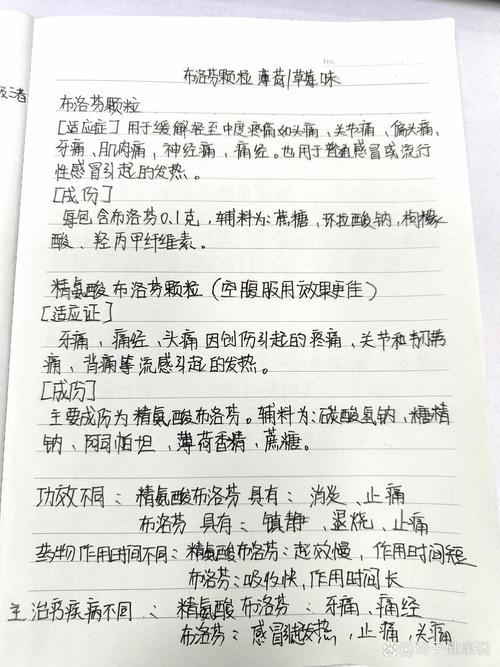 No.
布洛芬颗粒 薄荷/草莓味
布洛芬颗粒
[适应症] 用于缓解轻至中度疼痛如头痛、关节痛、偏头痛、
牙痛、肌肉痛、神经痛、痛经。也用于普通感冒或流行
性感冒引起的发热。
[成份]
每包含布洛芬0.1克，辅料为:蔗糖，环拉酸钠，枸橼
酸、羟丙甲纤维素。
精氨酸布洛芬颗粒（空腹服用效果更佳）
[适应证]
牙痛，痛经、头痛因创伤引起的疼痛、关节和韧带
痛，背痛等流感引起的发热。
[成份]
主要成份为精氨酸布洛芬。辅料为:碳酸氢钠，糖精
钠、阿司帕坦，薄荷香精，蔗糖。
功效不同：精氨酸布洛芬具有：消炎、止痛
布洛芬 具有：镇静、退烧、止痛
药物作用时间不同：精氨酸布洛芬：起效慢，作用时间短
布洛芬：吸收快，作用时间长
主治疗疾病不同：精氨酸布洛芬：牙痛、痛经
布洛芬：感冒发热，止痛，头痛